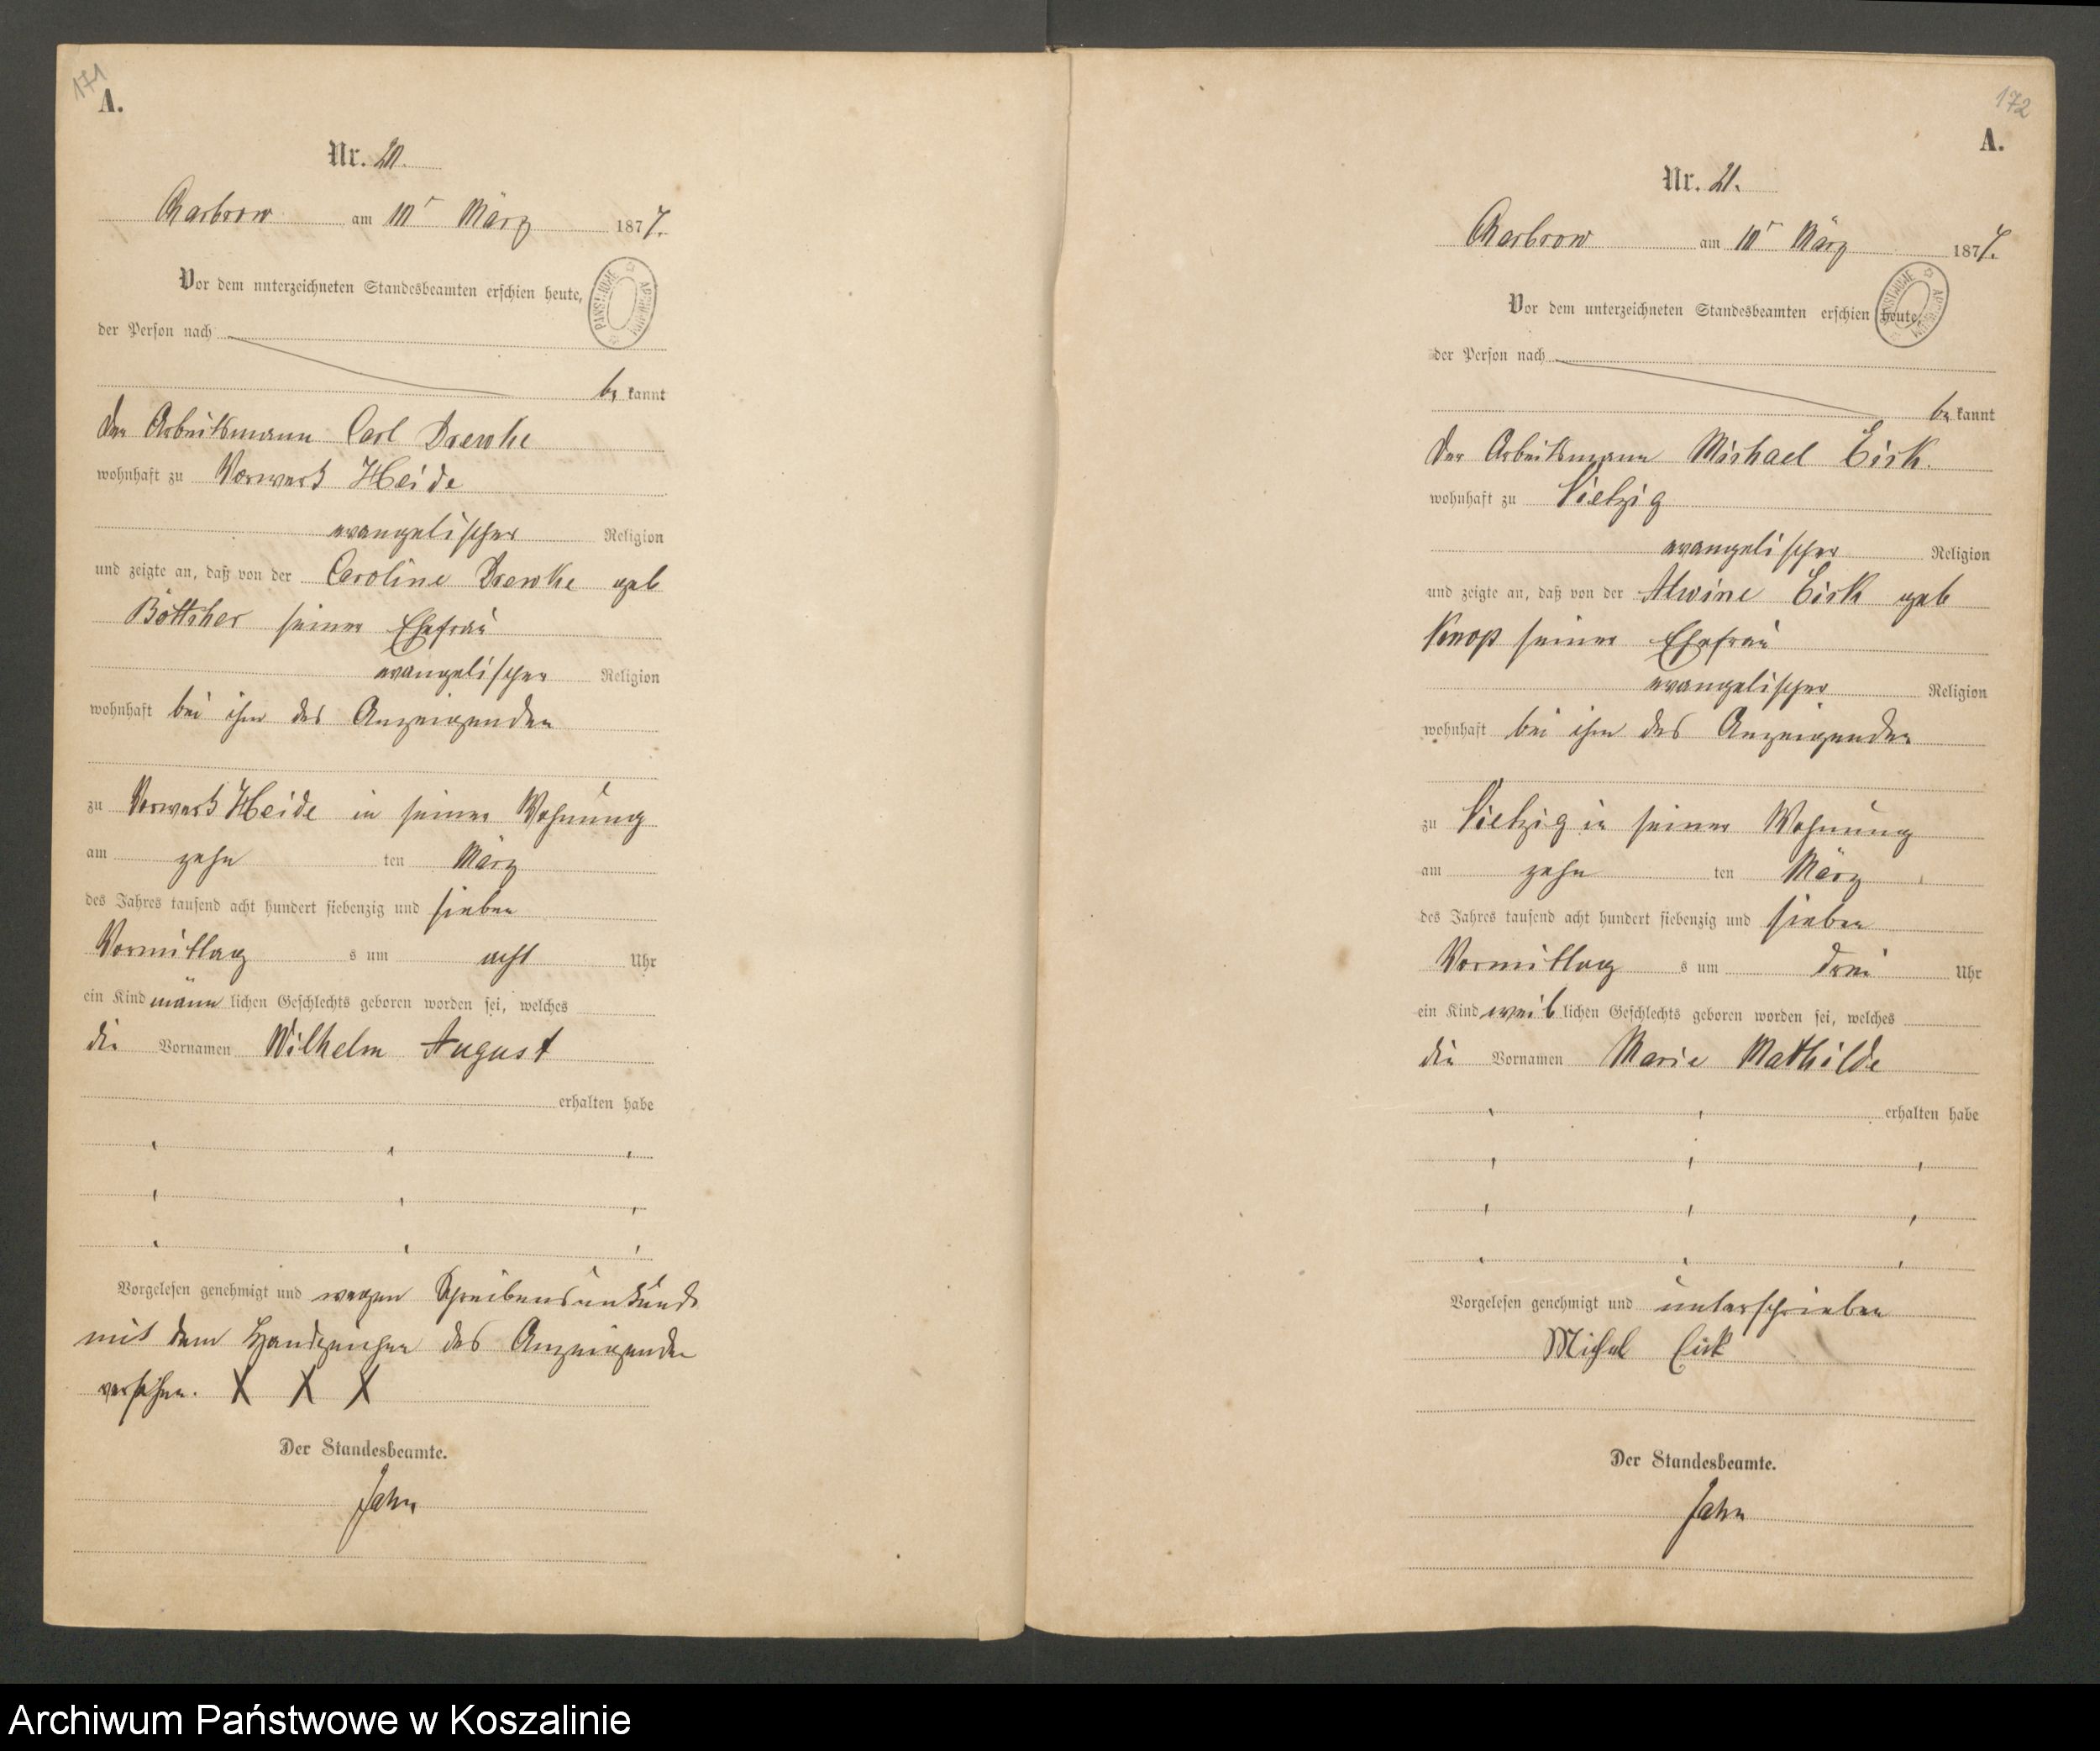 171
A.
Nr. 20.
Charbrow am 10ᵗ März 1877.
Vor dem unterzeichneten Standesbeamten erschien heute,
der Person nach
be kannt
der Arbeitsmann Carl Drewke
wohnhaft zu Vorwerk Heide
evangelischer Religion
und zeigte an, daß von der Caroline Drewke geb
Böttcher seiner Ehefrau
evangelischer Religion
wohnhaft bei ihm des Anzeigenden
zu Vorwerk Heide in seiner Wohnung
am zehn ten März
des Jahres tausend acht hundert siebenzig und sieben
Vormittag s um acht Uhr
ein Kind männ lichen Geschlechts geboren worden sei, welches
die Vornamen Wilhelm August
erhalten habe
Vorgelesen genehmigt und wegen Schreibensunkunde
mit dem Handzeichen des Anzeigenden
versehen. X X X
Der Standesbeamte.
Jahn
172
A.
Nr. 21.
Charbrow am 10ᵗ März 1877.
Vor dem unterzeichneten Standesbeamten erschien heute,
der Person nach
be kannt
der Arbeitsmann Michael Eick.
wohnhaft zu Vietzig
evangelischer Religion
und zeigte an, daß von der Alwine Eick geb
Knop seiner Ehefrau
evangelischer Religion
wohnhaft bei ihm des Anzeigenden
zu Vietzig in seiner Wohnung
am zehn ten März
des Jahres tausend acht hundert siebenzig und sieben
Vormittag s um drei Uhr
ein Kind weib lichen Geschlechts geboren worden sei, welches
die Vornamen Marie Mathilde
erhalten habe
Vorgelesen genehmigt und unterschrieben
Michael Eick
Der Standesbeamte.
Jahn
Archiwum Państwowe w Koszalinie